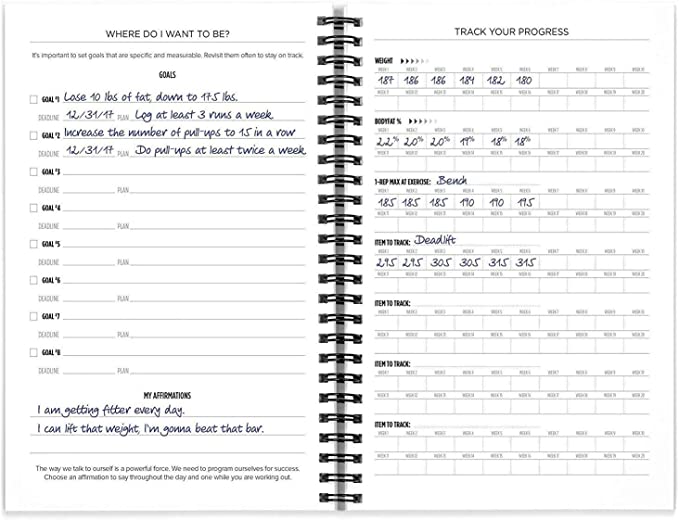 WHERE DO I WANT TO BE?
It's important to set goals that are specific and measurable. Revisit them often to stay on track.
GOALS
GOAL #1 Lose 10 lbs of fat, down to 175 lbs.
DEADLINE 12/31/17 PLAN Log at least 3 runs a week
GOAL #2 Increase the number of pull-ups to 15 in a row
DEADLINE 12/31/17 PLAN Do pull-ups at least twice a week
GOAL #3
DEADLINE PLAN
GOAL #4
DEADLINE PLAN
GOAL #5
DEADLINE PLAN
GOAL #6
DEADLINE PLAN
GOAL #7
DEADLINE PLAN
GOAL #8
DEADLINE PLAN
MY AFFIRMATIONS
I am getting fitter every day.
I can lift that weight, I'm gonna beat that bar.
The way we talk to ourself is a powerful force. We need to program ourselves for success.
Choose an affirmation to say throughout the day and one while you are working out.
TRACK YOUR PROGRESS
WEIGHT
WEEK 1 WEEK 2 WEEK 3 WEEK 4 WEEK 5 WEEK 6 WEEK 7 WEEK 8 WEEK 9 WEEK 10
187 186 186 184 182 180
WEEK 11 WEEK 12 WEEK 13 WEEK 14 WEEK 15 WEEK 16 WEEK 17 WEEK 18 WEEK 19 WEEK 20
BODYFAT %
WEEK 1 WEEK 2 WEEK 3 WEEK 4 WEEK 5 WEEK 6 WEEK 7 WEEK 8 WEEK 9 WEEK 10
22% 20% 20% 19% 18% 18%
WEEK 11 WEEK 12 WEEK 13 WEEK 14 WEEK 15 WEEK 16 WEEK 17 WEEK 18 WEEK 19 WEEK 20
1-REP MAX AT EXERCISE: Bench
WEEK 1 WEEK 2 WEEK 3 WEEK 4 WEEK 5 WEEK 6 WEEK 7 WEEK 8 WEEK 9 WEEK 10
185 185 185 190 190 195
WEEK 11 WEEK 12 WEEK 13 WEEK 14 WEEK 15 WEEK 16 WEEK 17 WEEK 18 WEEK 19 WEEK 20
ITEM TO TRACK: Deadlift
WEEK 1 WEEK 2 WEEK 3 WEEK 4 WEEK 5 WEEK 6 WEEK 7 WEEK 8 WEEK 9 WEEK 10
295 295 305 305 315 315
WEEK 11 WEEK 12 WEEK 13 WEEK 14 WEEK 15 WEEK 16 WEEK 17 WEEK 18 WEEK 19 WEEK 20
ITEM TO TRACK:
WEEK 1 WEEK 2 WEEK 3 WEEK 4 WEEK 5 WEEK 6 WEEK 7 WEEK 8 WEEK 9 WEEK 10
WEEK 11 WEEK 12 WEEK 13 WEEK 14 WEEK 15 WEEK 16 WEEK 17 WEEK 18 WEEK 19 WEEK 20
ITEM TO TRACK:
WEEK 1 WEEK 2 WEEK 3 WEEK 4 WEEK 5 WEEK 6 WEEK 7 WEEK 8 WEEK 9 WEEK 10
WEEK 11 WEEK 12 WEEK 13 WEEK 14 WEEK 15 WEEK 16 WEEK 17 WEEK 18 WEEK 19 WEEK 20
ITEM TO TRACK:
WEEK 1 WEEK 2 WEEK 3 WEEK 4 WEEK 5 WEEK 6 WEEK 7 WEEK 8 WEEK 9 WEEK 10
WEEK 11 WEEK 12 WEEK 13 WEEK 14 WEEK 15 WEEK 16 WEEK 17 WEEK 18 WEEK 19 WEEK 20